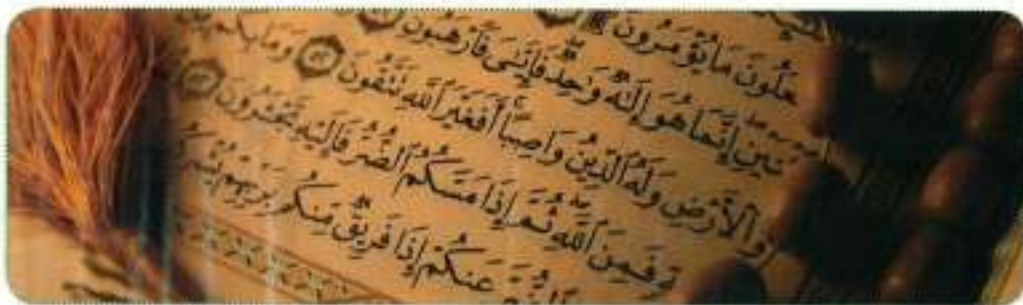 عَلُونَ مَا يُؤْمَرُونَ
نَيْنِ إِنَّمَا هُوَ إِلَٰهٌ وَٰحِدٌ فَإِيَّٰىَ فَٱرْهَبُونِ ۝٥١
وَٱلْأَرْضِ وَلَهُ ٱلدِّينُ وَاصِبًا أَفَغَيْرَ ٱللَّهِ تَتَّقُونَ ۝٥٢ وَمَا بِكُم
فَمِنَ ٱللَّهِ ثُمَّ إِذَا مَسَّكُمُ ٱلضُّرُّ فَإِلَيْهِ تَجْـَٔرُونَ ۝٥٣
عَنكُمْ إِذَا فَرِيقٌ مِّنكُم بِرَبِّهِمْ يُشْرِكُ